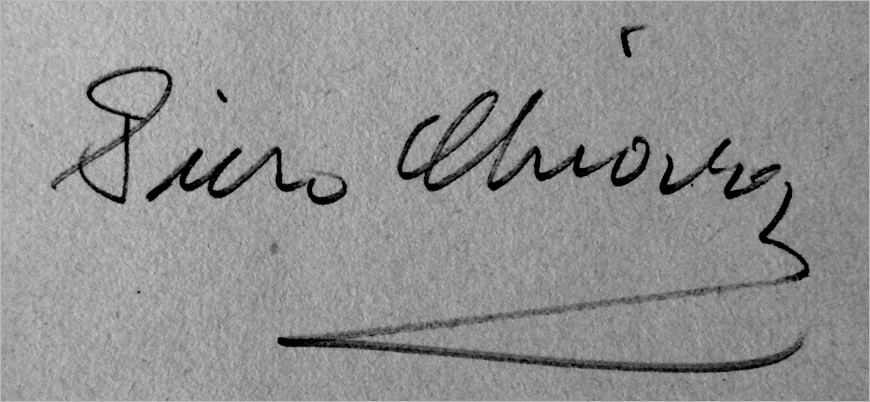 Piero Chiara